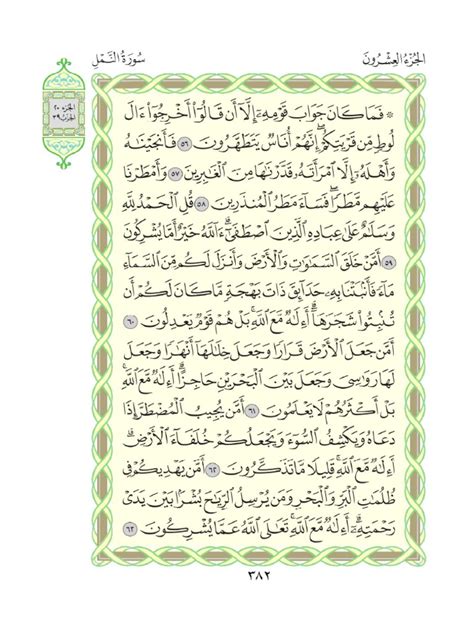 سُورَةُ النَّمْلِ
الجُزْءُ العِشْرُونَ
الجزء ٢٠
الحزب ٣٩
۞ فَمَا كَانَ جَوَابَ قَوْمِهِۦٓ إِلَّآ أَن قَالُوٓا۟ أَخْرِجُوٓا۟ ءَالَ
لُوطٍ مِّن قَرْيَتِكُمْ ۖ إِنَّهُمْ أُنَاسٌ يَتَطَهَّرُونَ ٥٦ فَأَنجَيْنَٰهُ
وَأَهْلَهُۥٓ إِلَّا ٱمْرَأَتَهُۥ قَدَّرْنَٰهَا مِنَ ٱلْغَٰبِرِينَ ٥٧ وَأَمْطَرْنَا
عَلَيْهِم مَّطَرًا ۖ فَسَآءَ مَطَرُ ٱلْمُنذَرِينَ ٥٨ قُلِ ٱلْحَمْدُ لِلَّهِ
وَسَلَٰمٌ عَلَىٰ عِبَادِهِ ٱلَّذِينَ ٱصْطَفَىٰٓ ۗ ءَآللَّهُ خَيْرٌ أَمَّا يُشْرِكُونَ
٥٩ أَمَّنْ خَلَقَ ٱلسَّمَٰوَٰتِ وَٱلْأَرْضَ وَأَنزَلَ لَكُم مِّنَ ٱلسَّمَآءِ
مَآءً فَأَنۢبَتْنَا بِهِۦ حَدَآئِقَ ذَاتَ بَهْجَةٍ مَّا كَانَ لَكُمْ أَن
تُنۢبِتُوا۟ شَجَرَهَآ ۗ أَءِلَٰهٌ مَّعَ ٱللَّهِ ۚ بَلْ هُمْ قَوْمٌ يَعْدِلُونَ ٦٠
أَمَّن جَعَلَ ٱلْأَرْضَ قَرَارًا وَجَعَلَ خِلَٰلَهَآ أَنْهَٰرًا وَجَعَلَ
لَهَا رَوَٰسِىَ وَجَعَلَ بَيْنَ ٱلْبَحْرَيْنِ حَاجِزًا ۗ أَءِلَٰهٌ مَّعَ ٱللَّهِ ۚ
بَلْ أَكْثَرُهُمْ لَا يَعْلَمُونَ ٦١ أَمَّن يُجِيبُ ٱلْمُضْطَرَّ إِذَا
دَعَاهُ وَيَكْشِفُ ٱلسُّوٓءَ وَيَجْعَلُكُمْ خُلَفَآءَ ٱلْأَرْضِ ۗ
أَءِلَٰهٌ مَّعَ ٱللَّهِ ۚ قَلِيلًا مَّا تَذَكَّرُونَ ٦٢ أَمَّن يَهْدِيكُمْ فِى
ظُلُمَٰتِ ٱلْبَرِّ وَٱلْبَحْرِ وَمَن يُرْسِلُ ٱلرِّيَٰحَ بُشْرًۢا بَيْنَ يَدَىْ
رَحْمَتِهِۦٓ ۗ أَءِلَٰهٌ مَّعَ ٱللَّهِ ۚ تَعَٰلَى ٱللَّهُ عَمَّا يُشْرِكُونَ ٦٣
٣٨٢